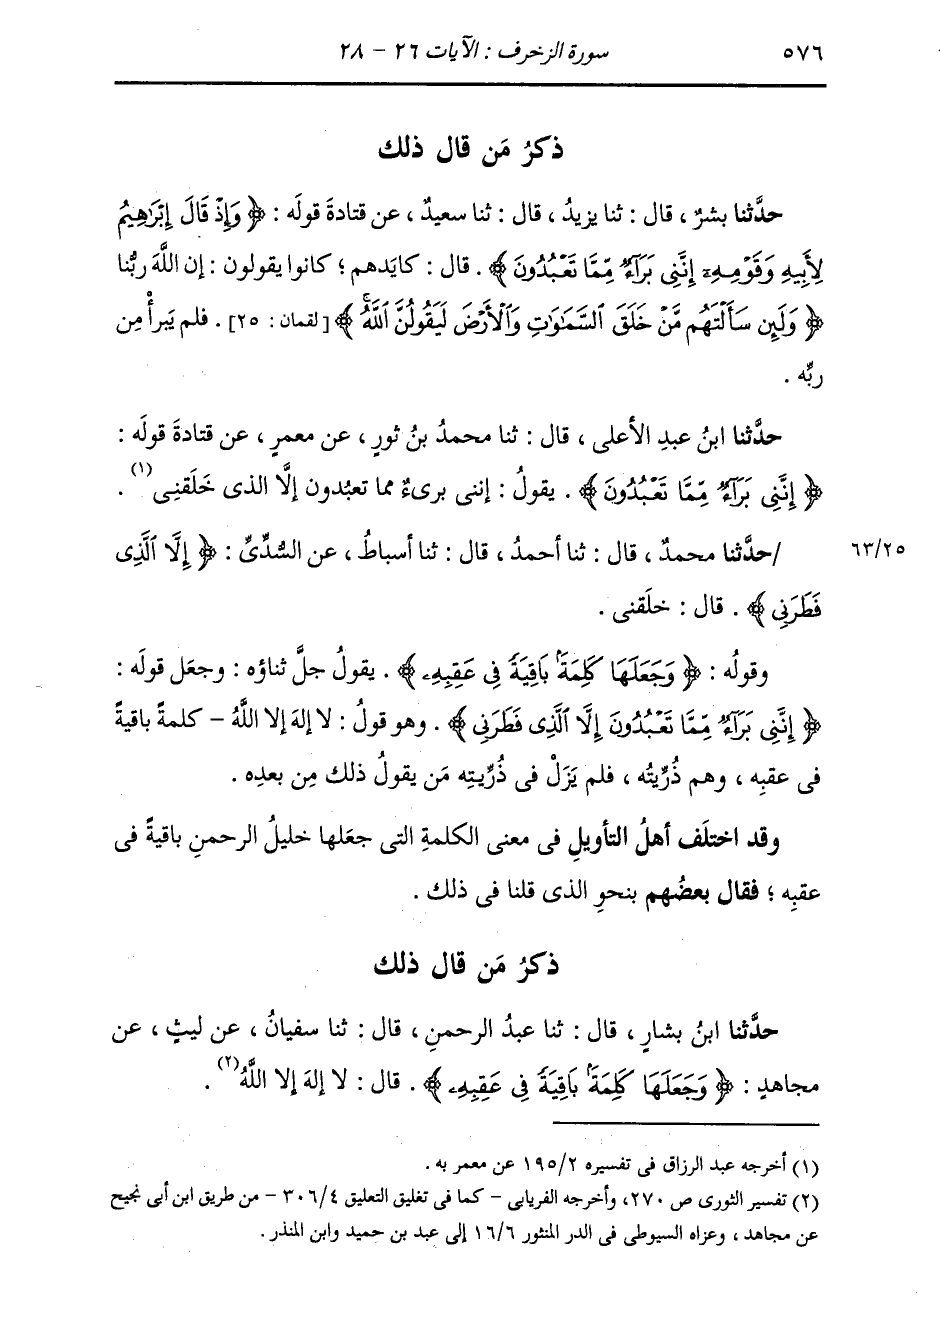 ٥٧٦ سورة الزخرف : الآيات ٢٦ - ٢٨
ذكرُ مَن قال ذلك
حدَّثنا بشرٌ ، قال : ثنا يزيدُ ، قال : ثنا سعيدٌ ، عن قتادةَ قولَه : ﴿ وَإِذْ قَالَ إِبْرَٰهِيمُ
لِأَبِيهِ وَقَوْمِهِۦٓ إِنَّنِى بَرَآءٌ مِّمَّا تَعْبُدُونَ ﴾ . قال : كايَدهم ؛ كانوا يقولون : إن اللَّهَ ربُّنا
﴿ وَلَئِن سَأَلْتَهُم مَّنْ خَلَقَ ٱلسَّمَٰوَٰتِ وَٱلْأَرْضَ لَيَقُولُنَّ ٱللَّهُ ﴾ [لقمان : ٢٥] . فلم يَبرأْ مِن
ربِّه .
حدَّثنا ابنُ عبدِ الأعلى ، قال : ثنا محمدُ بنُ ثورٍ ، عن معمرٍ ، عن قتادةَ قولَه :
﴿ إِنَّنِى بَرَآءٌ مِّمَّا تَعْبُدُونَ ﴾ . يقولُ : إننى برىءٌ مما تعبُدون إلَّا الذى خَلَقنِى (١) .
/حدَّثنا محمدٌ ، قال : ثنا أحمدُ ، قال : ثنا أسباطُ ، عن السُّدِّىِّ : ﴿ إِلَّا ٱلَّذِى ٦٣/٢٥
فَطَرَنِى ﴾ . قال : خلَقنى .
وقولُه : ﴿ وَجَعَلَهَا كَلِمَةًۢ بَاقِيَةً فِى عَقِبِهِۦ ﴾ . يقولُ جلَّ ثناؤه : وجعَل قولَه :
﴿ إِنَّنِى بَرَآءٌ مِّمَّا تَعْبُدُونَ إِلَّا ٱلَّذِى فَطَرَنِى ﴾ . وهو قولُ : لا إلهَ إلا اللَّهُ - كلمةً باقيةً
فى عقبِه ، وهم ذُرِّيتُه ، فلم يَزَلْ فى ذُرِّيتِه مَن يقولُ ذلك مِن بعدِه .
وقد اختلَف أهلُ التأويلِ فى معنى الكلمةِ التى جعَلها خليلُ الرحمنِ باقيةً فى
عقبِه ؛ فقال بعضُهم بنحوِ الذى قلنا فى ذلك .
ذكرُ مَن قال ذلك
حدَّثنا ابنُ بشارٍ ، قال : ثنا عبدُ الرحمنِ ، قال : ثنا سفيانُ ، عن ليثٍ ، عن
مجاهدٍ : ﴿ وَجَعَلَهَا كَلِمَةًۢ بَاقِيَةً فِى عَقِبِهِۦ ﴾ . قال : لا إلهَ إلا اللَّهُ (٢) .
(١) أخرجه عبد الرزاق فى تفسيره ١٩٥/٢ عن معمر به .
(٢) تفسير الثورى ص ٢٧٠، وأخرجه الفريابى - كما فى تغليق التعليق ٣٠٦/٤ - من طريق ابن أبى نجيح
عن مجاهد ، وعزاه السيوطى فى الدر المنثور ١٦/٦ إلى عبد بن حميد وابن المنذر .